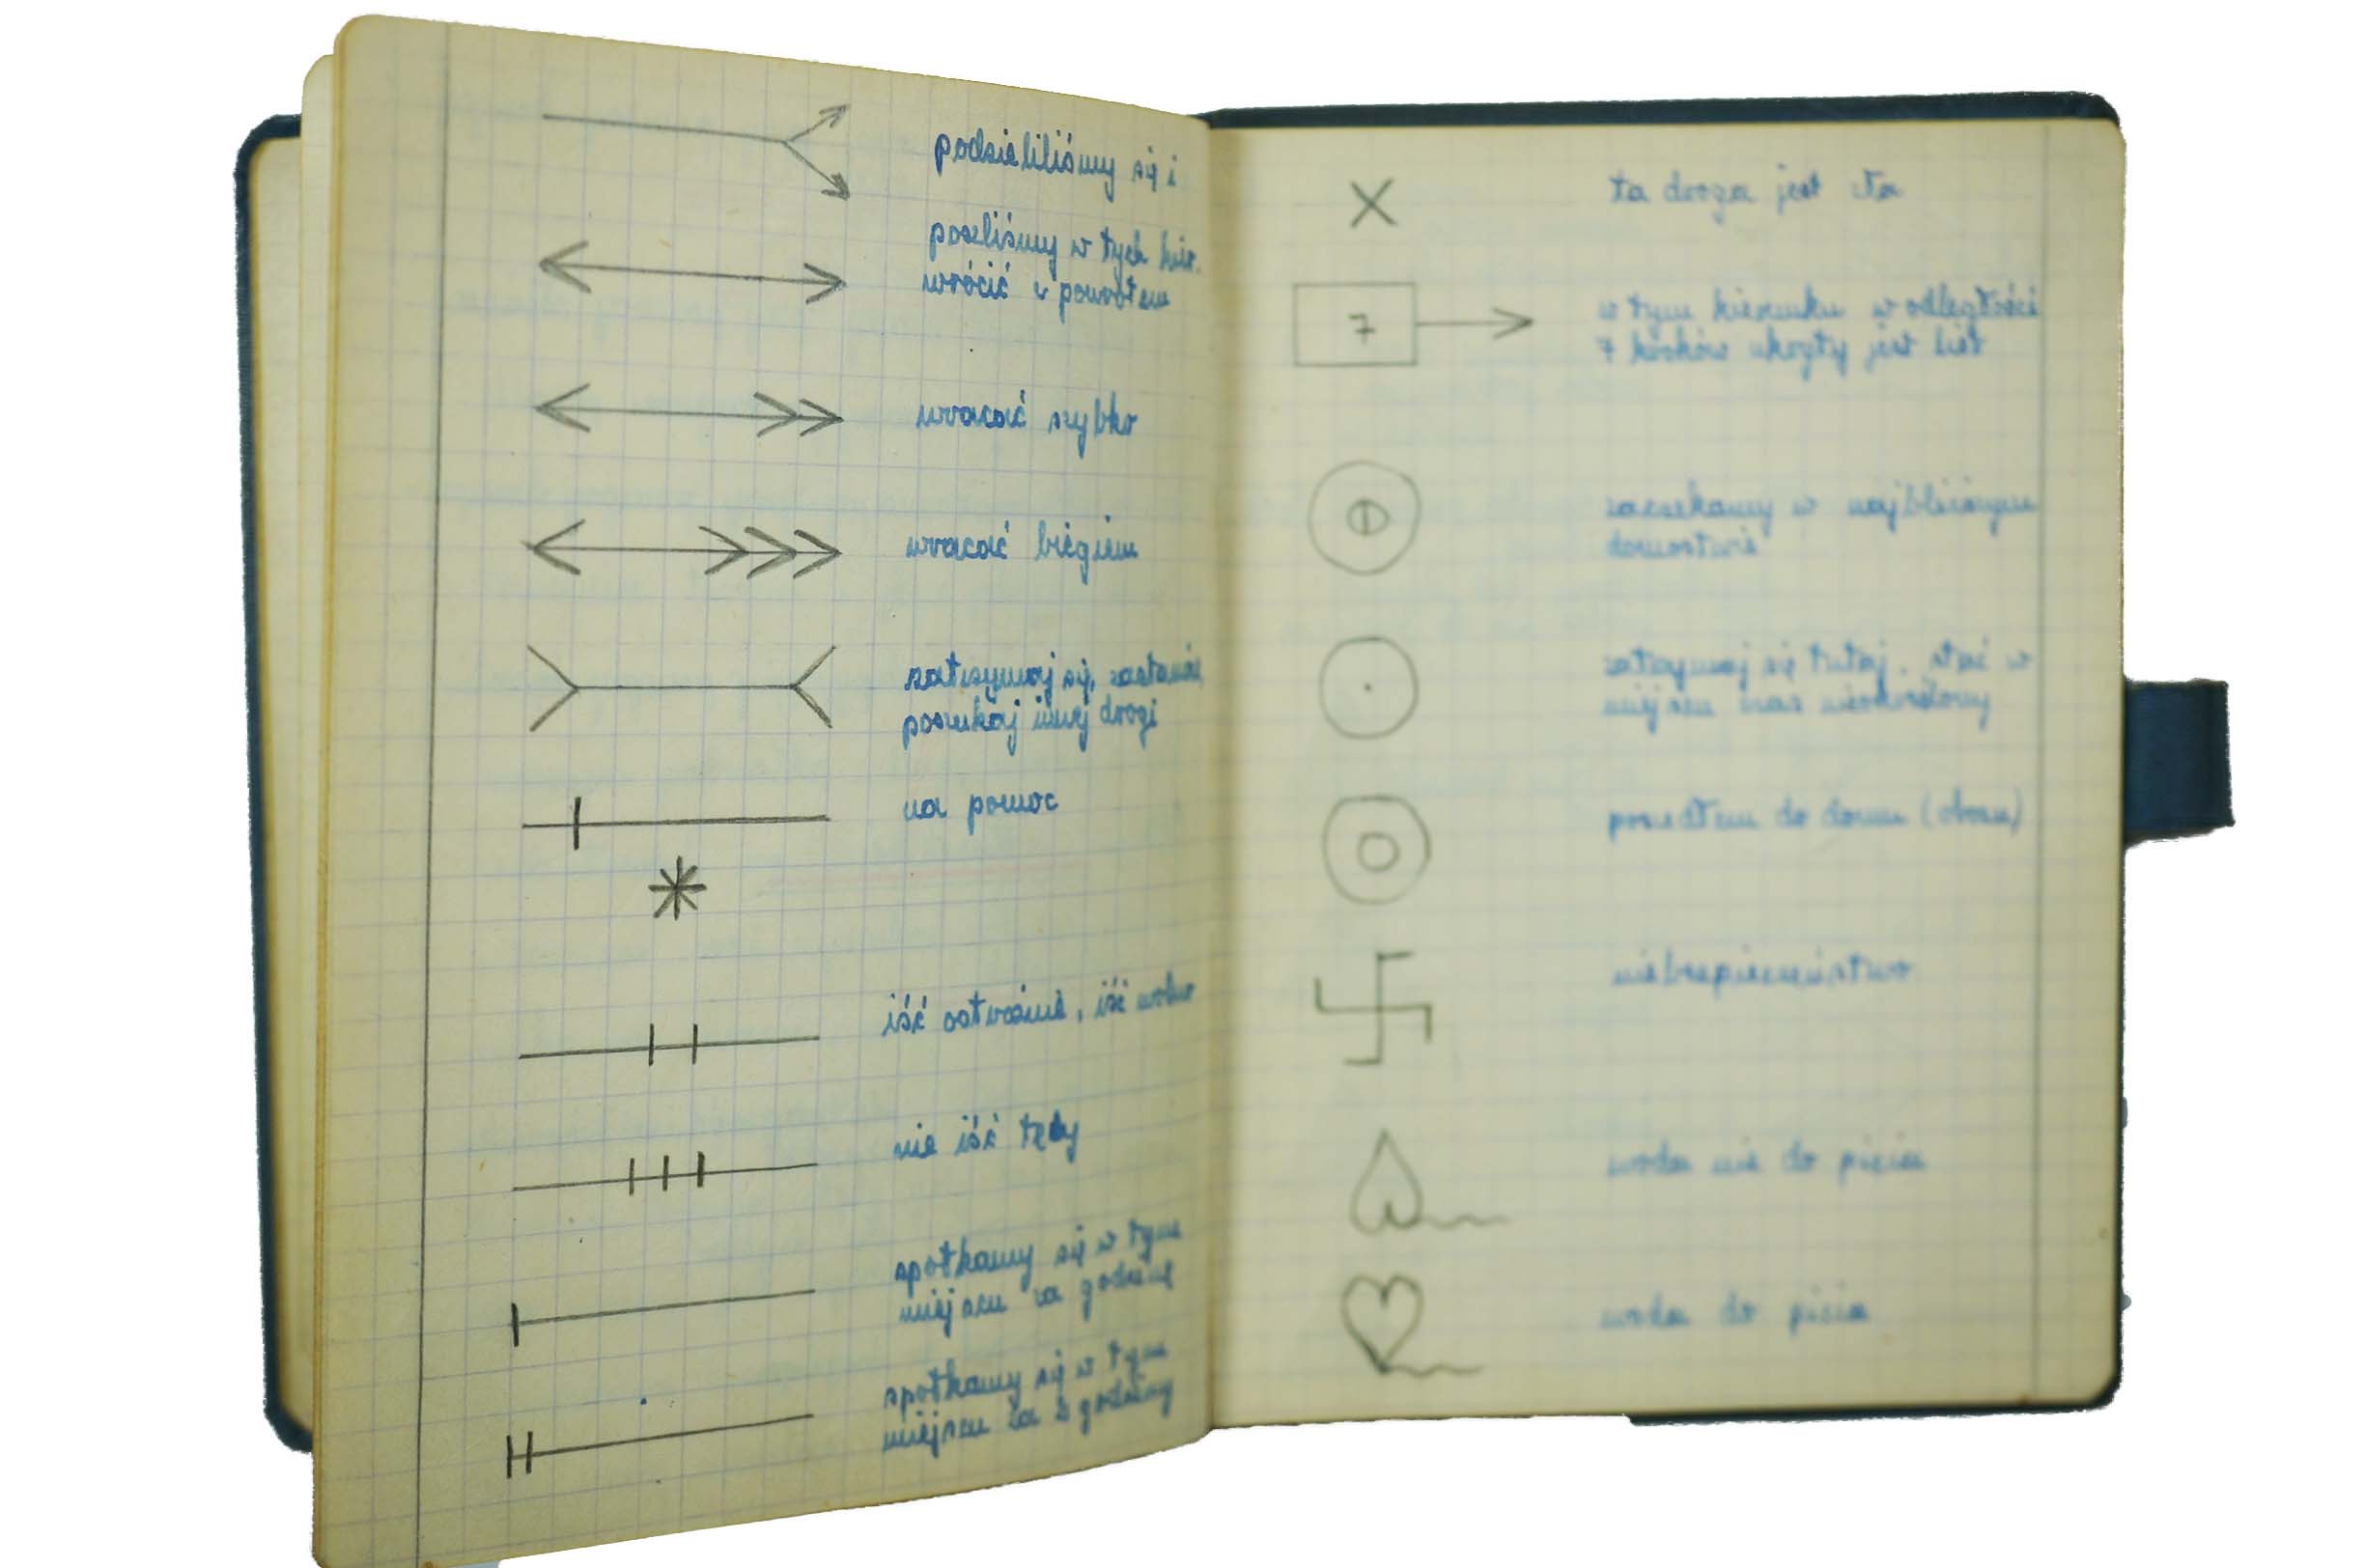 podzieliliśmy się i
poszliśmy w tych kier.
wrócić z powrotem
wracać szybko
wracać biegiem
zatrzymaj się, zastanów,
poszukaj innej drogi
na pomoc
iść ostrożnie, iść wolno
nie iść tędy
spotkamy się w tym
miejscu za godzinę
spotkamy się w tym
miejscu za 2 godziny
ta droga jest zła
7
w tym kierunku w odległości
7 kroków ukryty jest list
zaczekamy w najbliższym
domostwie
zatrzymaj się tutaj. stać w
miejscu czas nieokreślony
poszedłem do domu (obozu)
niebezpieczeństwo
woda nie do picia
woda do picia